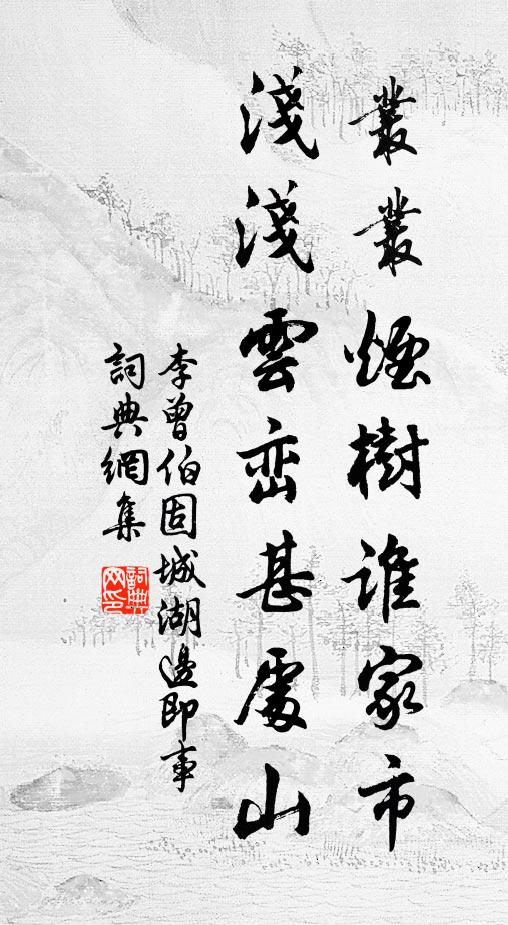 叢叢煙樹誰家市
淺淺雲峦甚處山
李曾伯固城湖邊即事
詞典網集
詞典網印